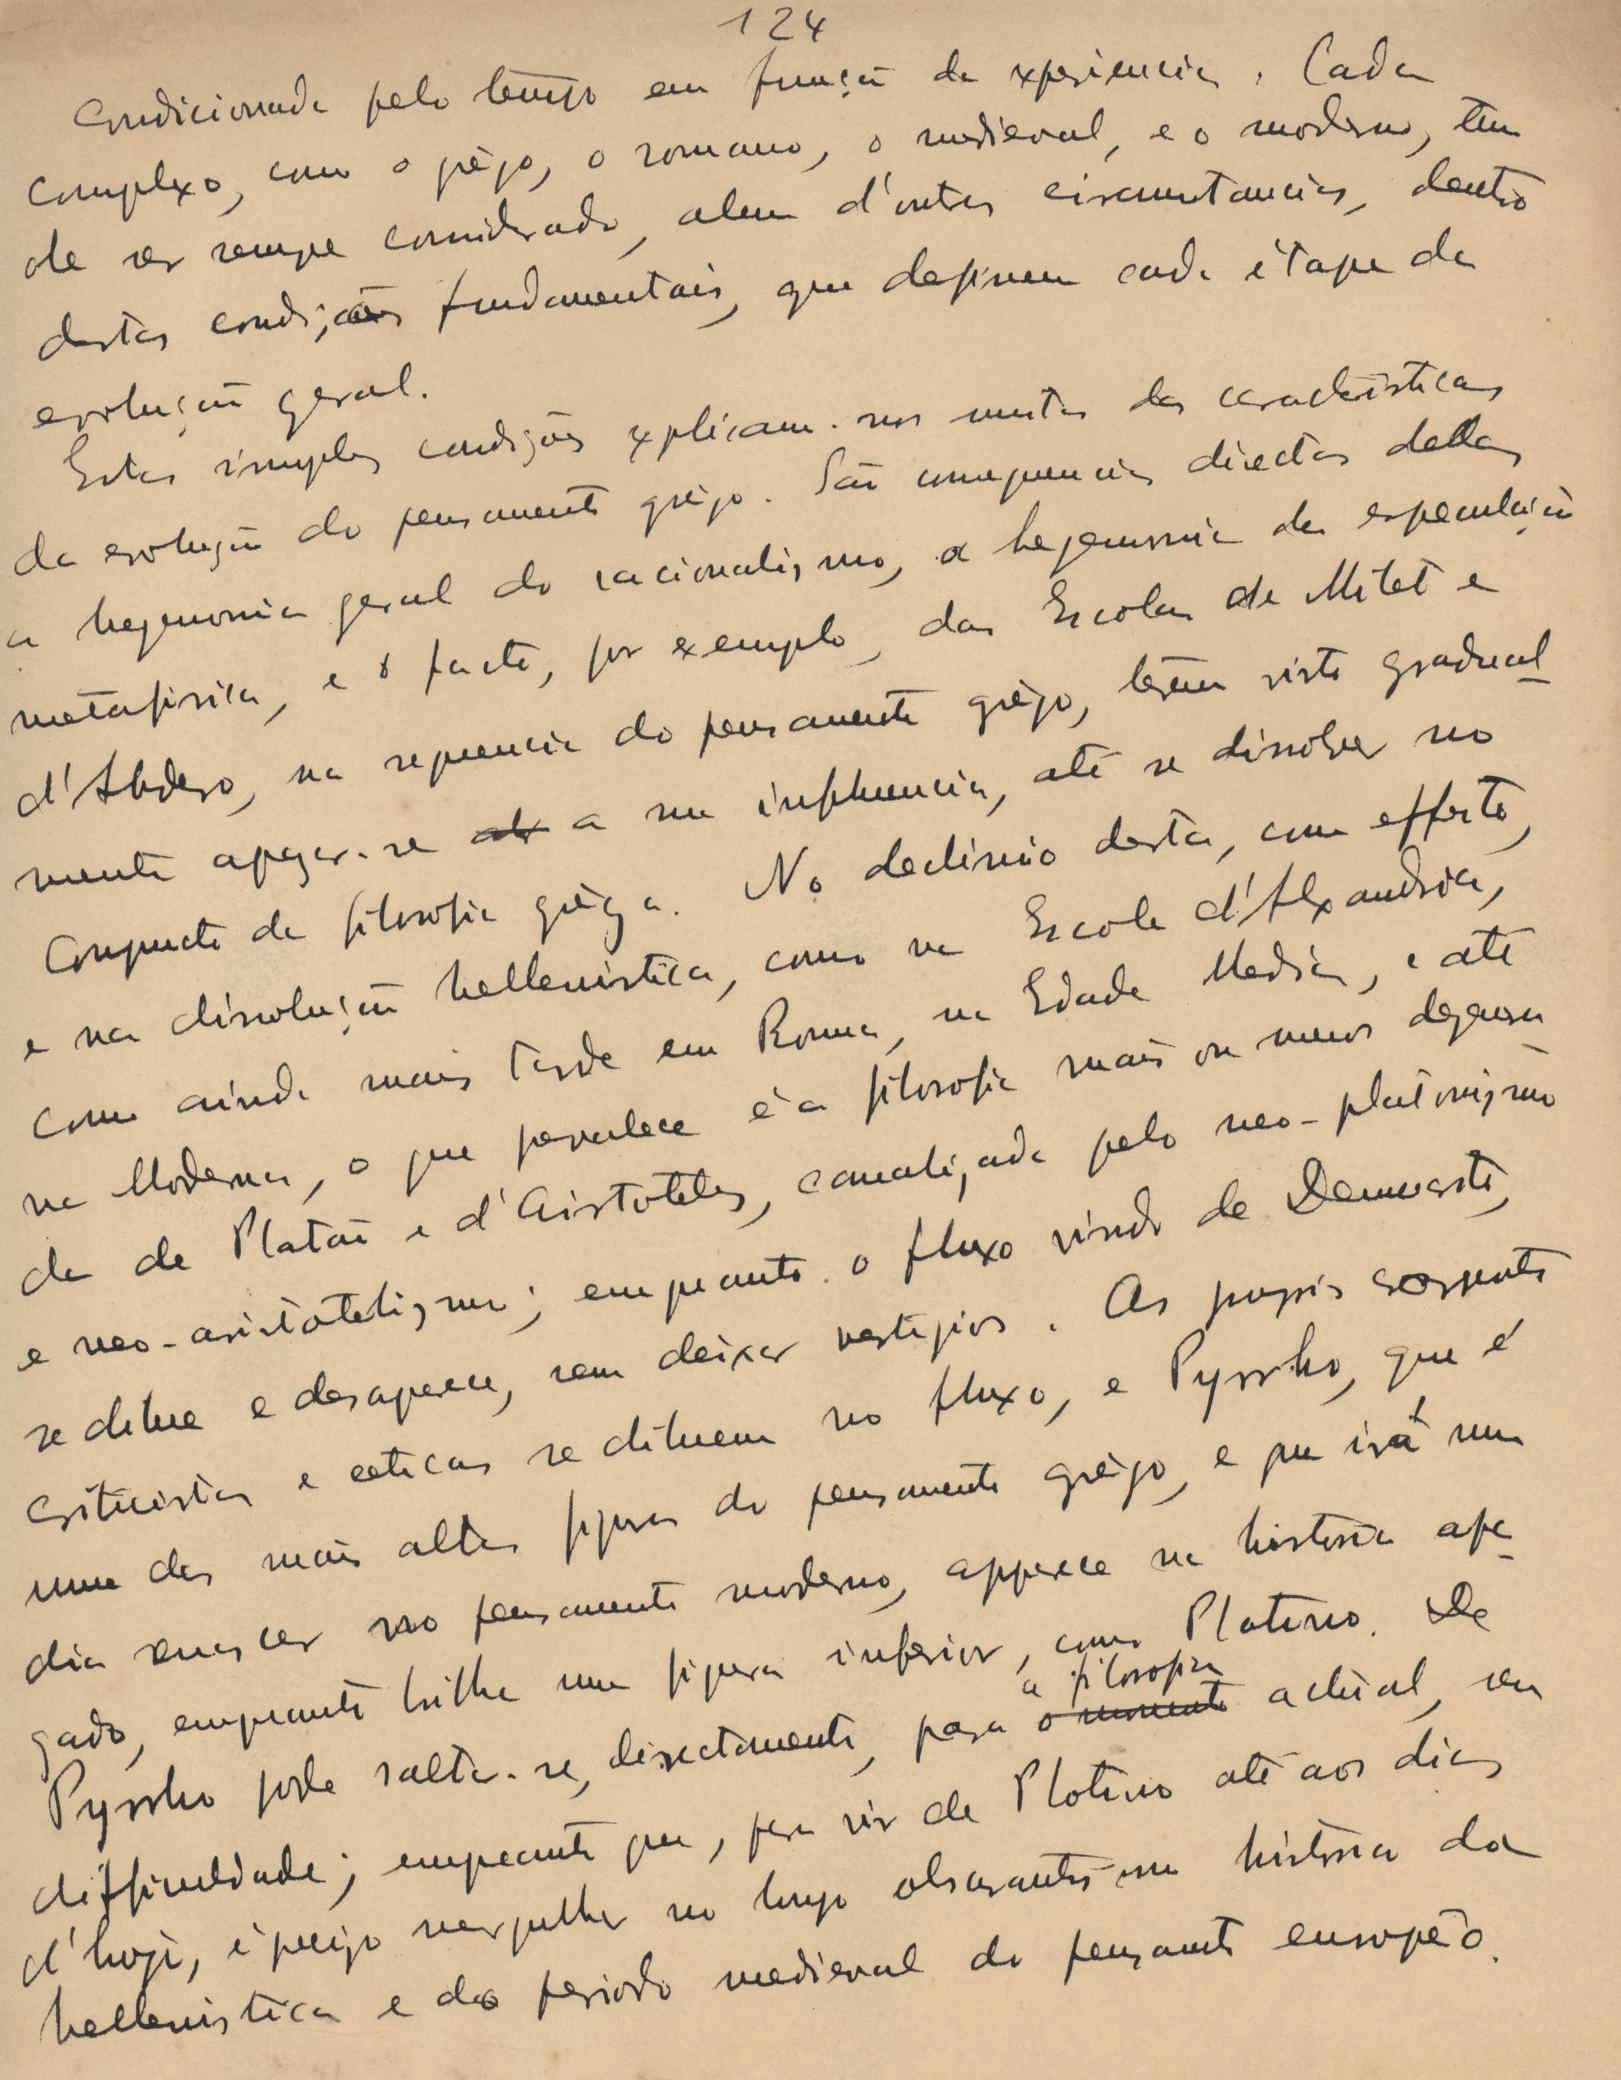 124
condicionada pelo tempo em função da experiencia. Cada
complexo, como o grêgo, o romano, o medieval, e o moderno, tem
de ser sempre considerado, alem d'outras circumstancias, dentro
destas condições fundamentais, que definem cada étape da
evolução geral.
Estas simples condições explicam-nos muitas das caracteristicas
da evolução do pensamento grêgo. São consequencias directas dellas
a hegemonia geral do racionalismo, a hegemonia da especulação
metafisica, e o facto, por exemplo, das Escolas de Mileto e
d'Abdera, na sequencia do pensamento grêgo, terem visto gradual
mente apagar-se a sua influencia, até se dissolver no
conjuncto da filosofia grêga. No declinio desta, com effeito,
e na dissolução hellenistica, como na Escola d'Alexandria,
como ainda mais tarde em Roma, na Edade Media, e até
na Moderna, o que prevalece é a filosofia mais ou menos degenera
da de Platão e d'Aristoteles, canalizada pelo neo-platonismo
e neo-aristotelismo; emquanto o fluxo vindo de Democrito,
se dilue e desaparece, sem deixar vestigios. As proprias correntes
criticistas e ceticas se diluem no fluxo, e Pyrrho, que é
uma das mais altas figuras do pensamento grêgo, e que irá um
dia renascer no pensamento moderno, apparece na historia apa
gado, emquanto brilha uma figura inferior, como Plotino. De
Pyrrho pode saltar-se, directamente, para a filosofia actual, sem
difficuldade; emquanto que, para vir de Plotino até aos dias
d'hoje, é preciso mergulhar no longo obscurantismo historia da
hellenistica e do periodo medieval do pensamento européo.